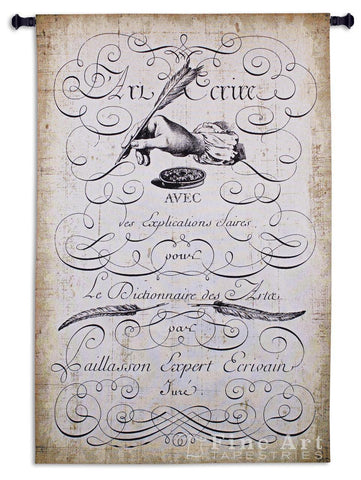 L'Art d'Ecrire
AVEC
des Explications claires
pour
Le Dictionnaire des Arts
par
Paillasson Expert Ecrivain
Juré.
Fine Art
TAPESTRIES